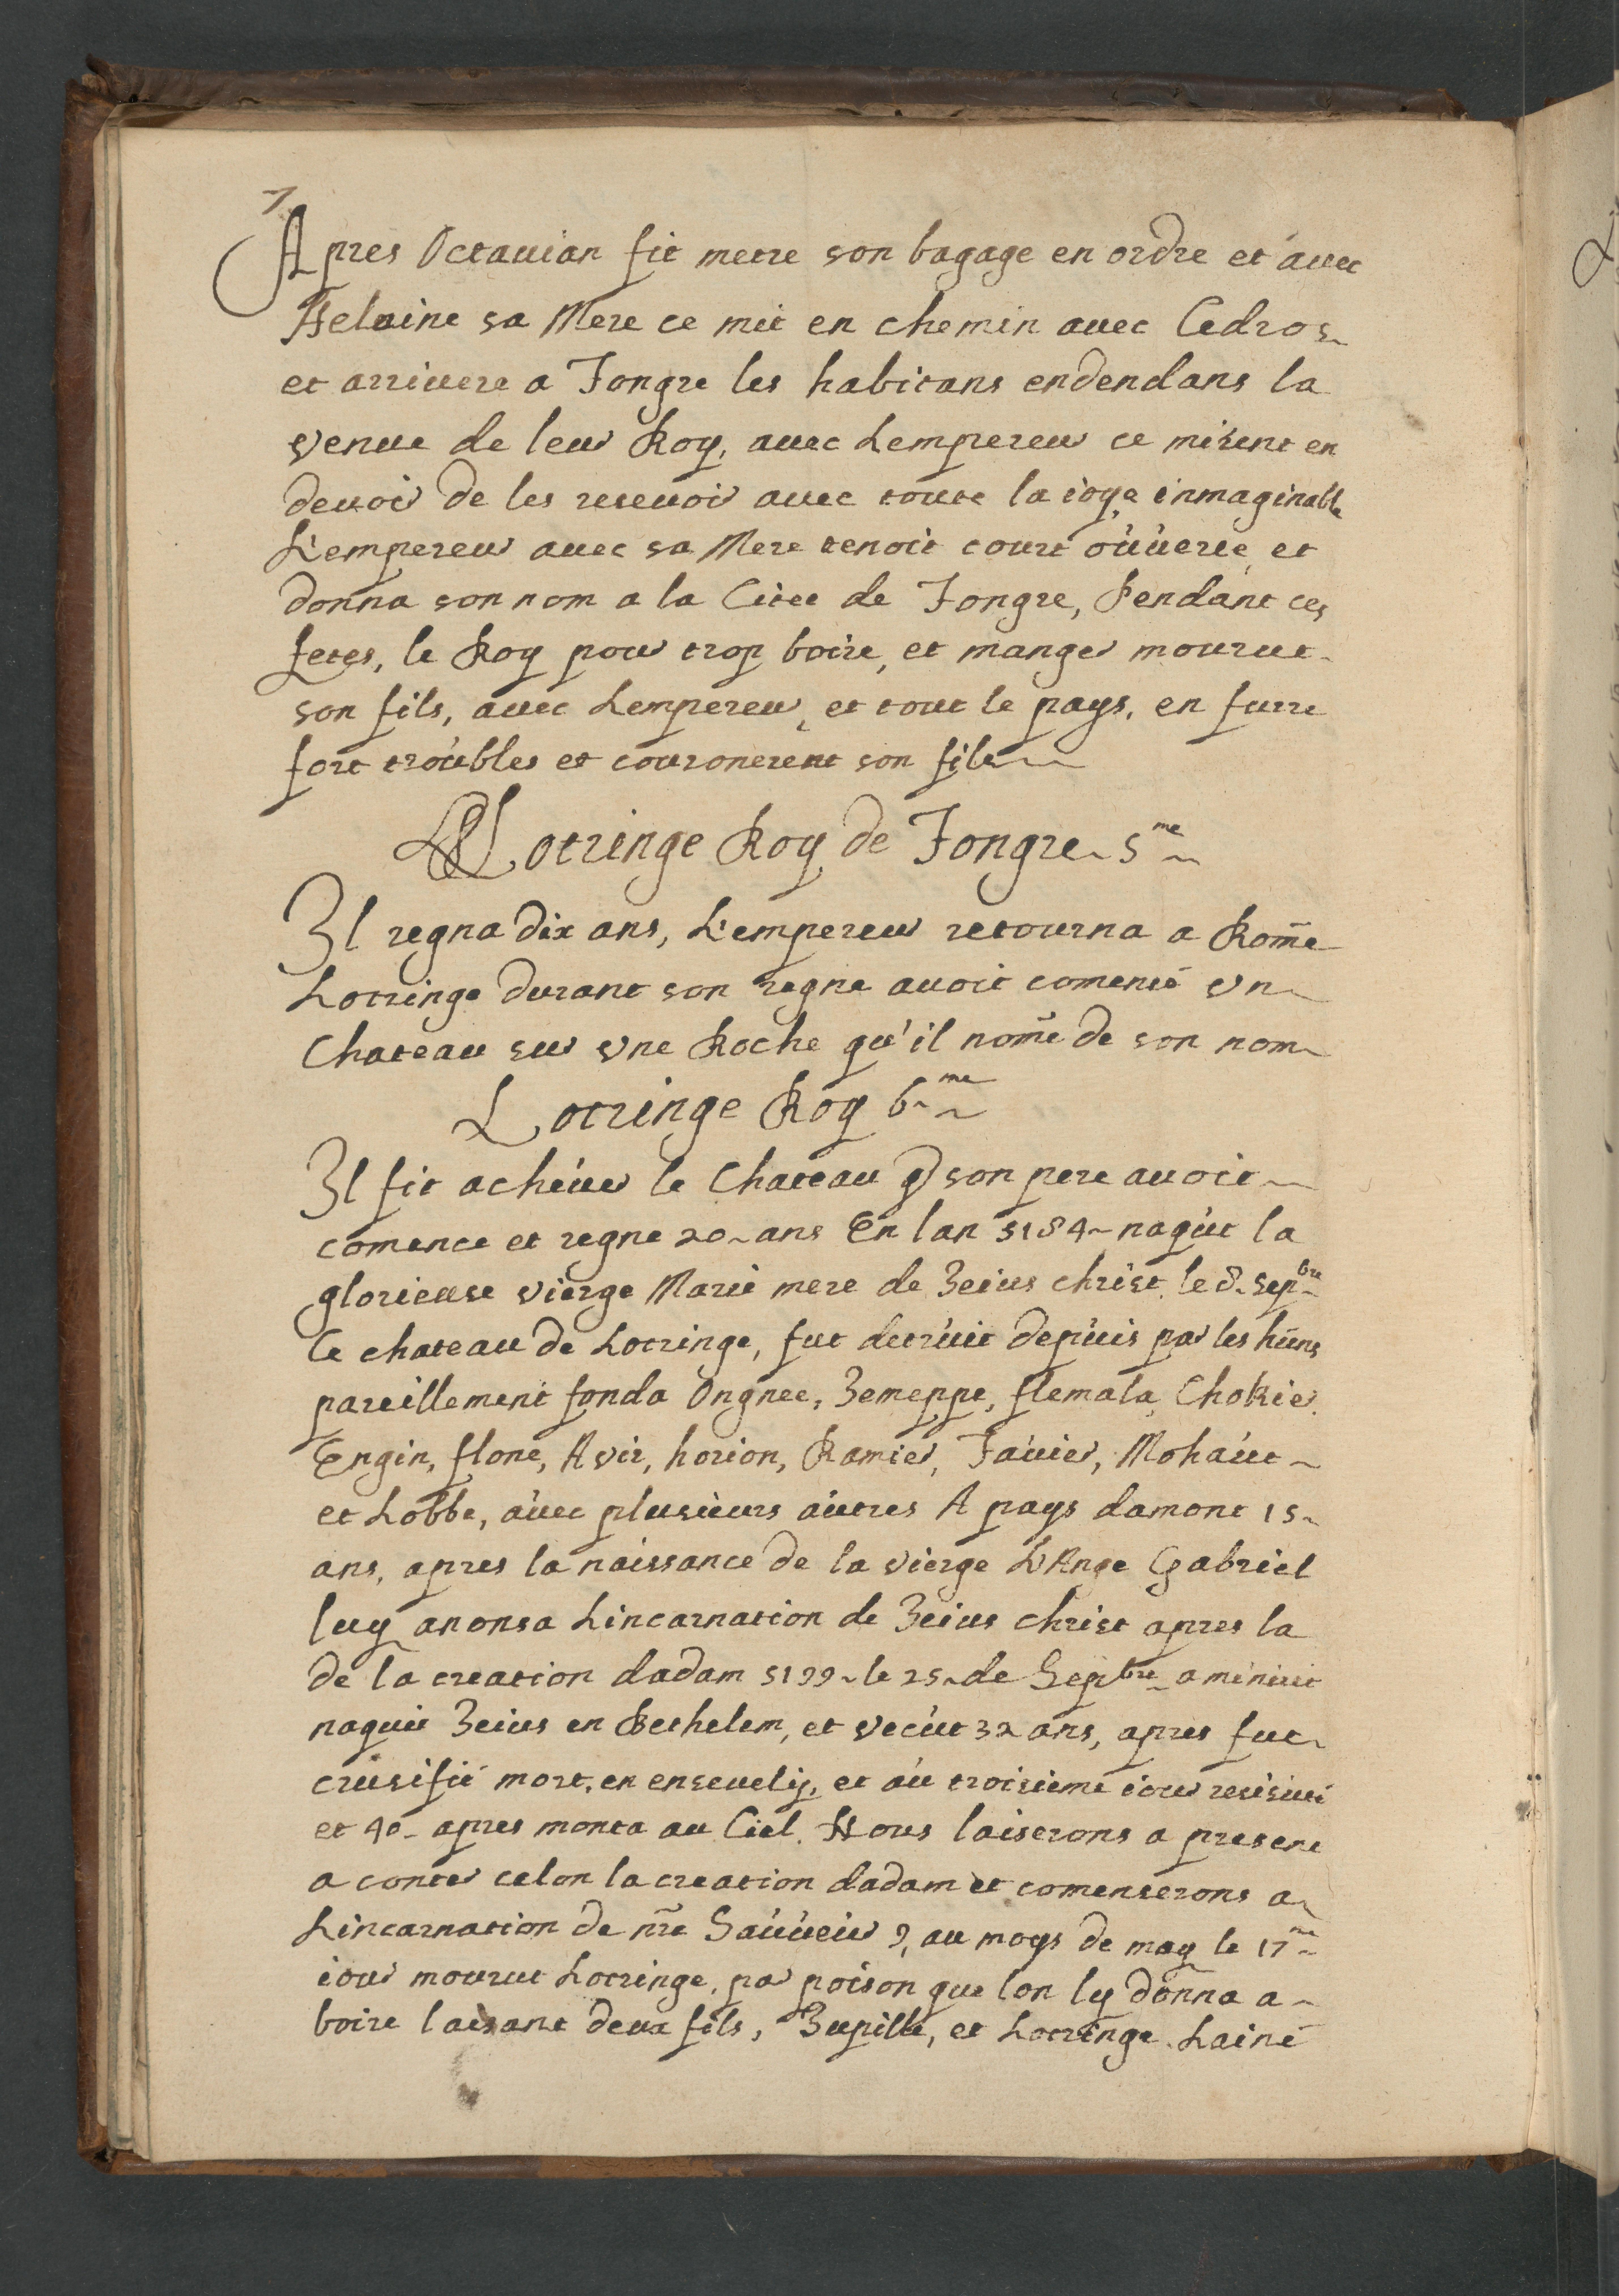 7.
Apres Octauian fit metre son bagage en ordre et auec
Heleine sa Mere ce mit en chemin auec Cedros
et arriuere a Tongre les habitans endendans la
venue de leur Roy, auec Lempereur ce mirent en
deuoir de les reseuoir auec toute la ioye inmaginable
L'empereur auec sa Mere tenoit court ouuerte et
donna son nom a la Citee de Tongre, Pendant ces
fetes, le Roy pour trop boire, et manger mourut
son fils, auec Lempereur, et tout le pays, en furre
fort troubles et couronerent son fils
Lotringe Roy de Tongre 5me
Il regna dix ans, L'empereur retourna a Rom̄e
Lotringe durant son regne auoit comensé vn
Chateau sur vne Roche qu'il nom̄e de son nom
Lotringe Roy 6me
Il fit acheuer le Chateau q son pere auoit
comence et regne 20 ans En lan 5184 naqut la
glorieuse vierge Marie mere de Jeius christ le 8. Sepbre
Ce chateau de Lotringe, fut detruit depuis par les huns
pareillement fonda Ongnee, Jemeppe, flemala, Chokier
Engin, flone, Avir, horion, Ramier, Tauier, Mohaut
et Lobbe, auec plusieurs autres A pays damont 15
ans, apres la naissance de la vierge L'Ange Gabriel
luy anonsa Lincarnation de Jeius christ apres la
de la creation dadam 5199 le 25 de Sepbre a minuit
naquit Jeius en Bethelem, et vecut 32 ans, apres fut
crusifié mort, en enseuely, et au troisieme iour resusiui
et 40 apres monta au Ciel. Nous laiserons a present
a conter celon la creation dadam et comenserons a
Lincarnation de nr̄e Sauueur 9, au moys de may le 17me
iour mourut Lotringe, par poison que lon ly donna a
boire laisant deux fils, Jupille, et Lotringe. Lainé